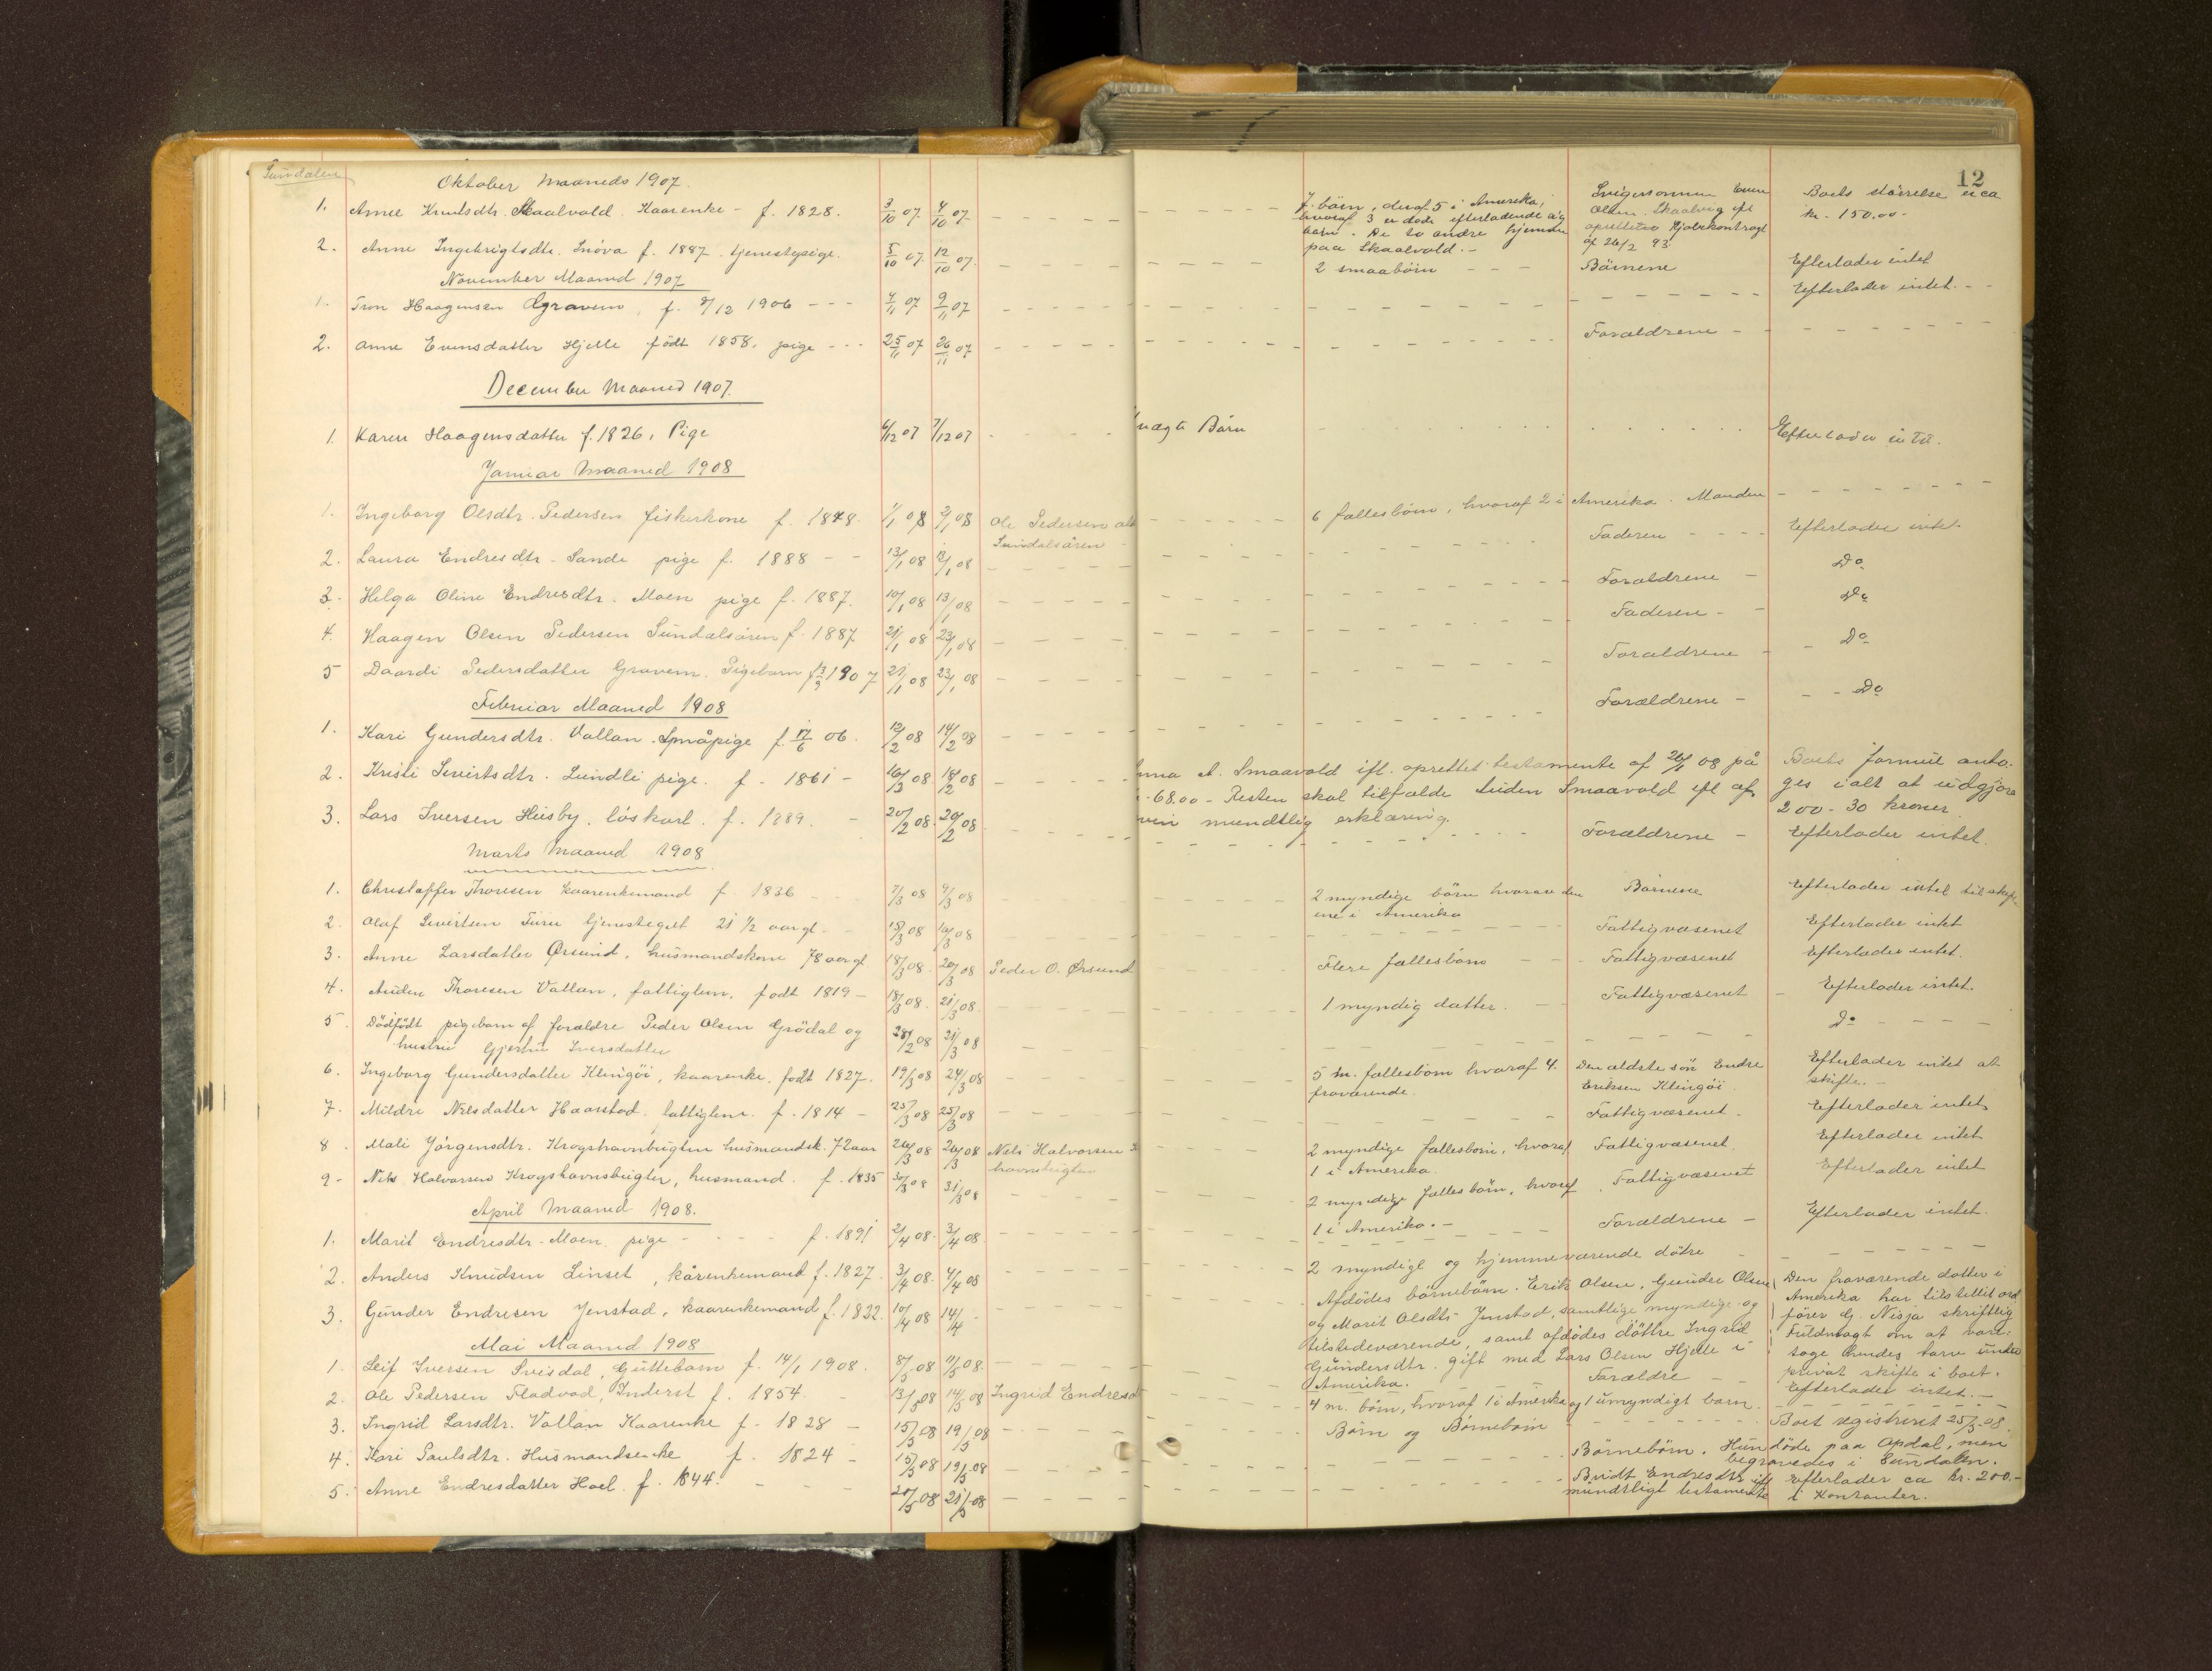 Sundalen
Oktober Maaneds 1907.
1. Anne Knutsdtr. Skaalvold. Kaarenke - f. 1828. 3/10 07 4/10 07
7 börn, deraf 5 i Amerika,
hvoraf 3 er døde efterladende sig
barn. De to andre hjemme
paa Skaalvold. -
Svigersønnen Even
Olsen Skaalvig ifl
oprettet Kjøbekontragt
af 26/2 93
Boets størrelse er ca
kr. 150,00 -
12
2. Anne Ingebrigtsdtr. Snöva f. 1887. tjenestepige. 5/10 07 12/10 07. 2 smaabörn - - - Börnene Efterlader intet
November Maaned 1907
1. Tron Haagensen Øgravem, f. 8/12 1906 - - - 7/11 07 9/11 07 Efterlader intet. - -
2. Anne Evensdatter Hjelle født 1858, pige - - - 25/11 07 26/11 07 Forældrene -
December Maaned 1907.
1. Karen Haagensdatter f. 1826, Pige 6/12 07 7/12 07 uægte Børn Efterlader intet.
Januar Maaned 1908
1. Ingeborg Olsdtr. Pedersen fiskerkone f. 1848. 1/1 08 2/1 08 Ole Pedersen
Sundalsören
6 fællesbörn, hvoraf 2 i Amerika. Manden
2. Laura Endresdtr. Sande pige f. 1888 - - 13/1 08 08 Faderen - - - - Efterlader intet.
3. Helga Oline Endresdtr. Moen pige f. 1887. 10/1 08 13/1 08 Forældrene - Do
4. Haagen Olsen Pedersen Sundalsören f. 1887 21/1 08 23/1 08 Faderen - - Do
5 Daardi Pedersdatter Gravem. Pigebarn f 1907 21/1 08 23/1 08 Forældrene Do
Februar Maaned 1908
1. Kari Gundersdtr. Vollan. Småpige f. 17/6 06. 12/2 08 14/2 08 Forældrene - - - Do
2. Kristi Sivertsdtr. Lundli pige. f. 1861 - 16/3 08 18/2 08
Anna A. Smaavold ifl. oprettet testamente af 26/1 08 på
- 68.00 - Resten skal tilfalde Auden Smaavold ifl af
mundtlig erklæring.
Boets formue anta-
ges ialt at udgjøre
200 - 30 kroner
3. Lars Iversen Husby, löskarl. f. 1889. - 20/2 08. 29/2 08 Forældrene - Efterlader intet.
Marts Maaned 1908
1. Christoffer Thoresen kaarenkemand f. 1836 7/3 08 9/3 08
2 myndige börn hvorav den
ene i Amerika
Börnene
Efterlader intet til skifte
2. Olaf Sivertsen Furu tjenestegut 21 1/2 aar gl. - 08 08 Fattigvæsenet Efterlader intet
3. Anne Larsdatter Ørsund, husmandskone 78 aar gl 18/3 08. 20/3 08 Peder O. Ørsund Flere fællesbörn - - Fattigvæsenet Efterlader intet.
4. Auden Thoresen Vollan, fattiglem, født 1819 - 18/3 08. 21/3 08 1 myndig datter. - Fattigvæsenet - Efterlader intet.
5. Dödfödt pigebarn af forældre Peder Olsen Grödal og
hustru Gjertru Iversdatter 28/2 08 21/3 08 Do - - - -
6. Ingeborg Gundersdatter Klingöi, kaarenke, født 1827. 19/3 08 24/3 08
5 m. fællesbörn hvoraf 4.
fraværende.
Den ældste sön Endre
Eriksen Klingöi
Efterlader intet at
skifte. -
7. Mildri Nilsdatter Haarstad. fattiglem. f. 1814 - 25/3 08 25/3 08 Fattigvæsenet - Efterlader intet
8. Mali Jørgensdtr. Krogshavnbugten husmandsk. 72 aar 26/3 08 26/3 08 Nils Halvorsen K
havnsbugten
2 myndige fællesbörn, hvoraf
1 i Amerika.
Fattigvæsenet Efterlader intet
9. Nils Halvorsen Krogshavnsbugten, husmand. f. 1835 30/3 08 31/3 08
2 myndige fællesbörn, hvoraf
1 i Amerika. -
Fattigvæsenet Efterlader intet
April Maaned 1908.
1. Marit Endresdtr. Moen. pige - - - - f. 1891 2/4 08. 3/4 08. Forældrene - Efterlader intet.
2. Anders Knudsen Linset, kårenkemand f. 1827. 3/4 08. 4/4 08 2 myndige og hjemmeværende døtre
3. Gunder Endresen Jenstad, kaarenkemand f. 1832. 10/4 08 14/4
Afdödes börnebörn. Erik Olsen, Gunder Olsen
og Marit Olsdtr Jenstad, samtlige myndige og
tilstedeværende, samt afdödes döttre Ingrid
Gundersdtr. gift med Lars Olsen Hjelle i
Amerika.
Den fraværende datter i
Amerika har tilstillet ord
fører G. Nisja skriftlig
Fuldmagt om at vare-
tage hendes tarv under
privat skifte i boet.
Mai Maaned 1908
1. Leif Iversen Svisdal, Guttebarn f. 14/1 1908. 8/5 08 11/5 08. Forældre - Efterlader intet. -
2. Ole Pedersen Fladvad, Inderst f. 1854. - 13/5 08 14/5 08 Ingrid Endresd 4 m. börn, hvoraf 1 i Amerika og 1 umyndigt barn.
3. Ingrid Larsdtr. Vollan Kaarenke f. 1828 - 15/5 08 19/5 08 Börn og Börnebörn - Boet registreret 25/5 08.
4. Kari Paulsdtr. Husmandsenke f. 1824 - 15/5 08 19/5 08 Börnebörn. Hun døde paa Opdal, men
begravedes i Sundalen.
5. Anne Endresdatter Hoel. f. 1844. 20/5 08 21/5 08
Bridt Endresdtr ifl
mundtligt testamente
Efterlader ca kr. 200.-
i Kontanter.